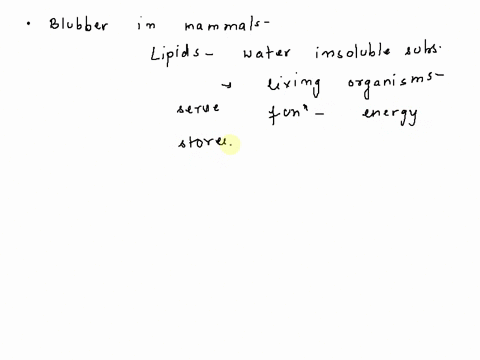 • Blubber in mammals-
Lipids- water insoluble subs.
→ living organisms-
serve funⁿ- energy
store.